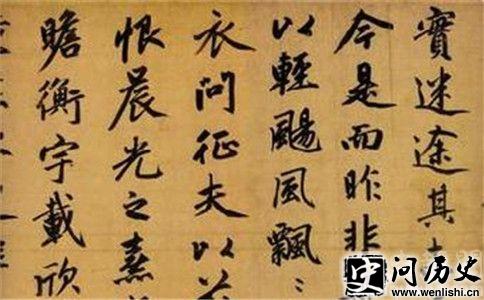 實迷途其
今是而昨非
以輕颺風飄〻
衣問征夫以
恨晨光之熹
瞻衡宇載欣
史 问历史
www.wenlishi.cn